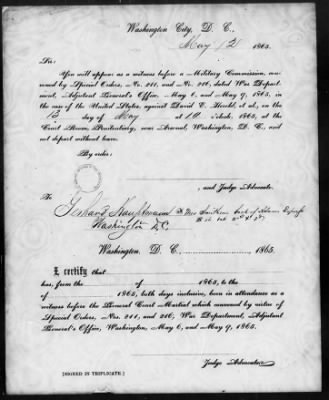 Washington City, D. C.,
May 12 1865.
Sir:
You will appear as a witness before a Military Commission, con-
vened by Special Orders, No. 211, and No. 216, dated War Depart-
ment, Adjutant General's Office, May 6, and May 9, 1865, in
the case of the United States, against David E. Herold, et al., on the
13 day of May at 10 o'clock, 1865, at the
Court Room, Penitentiary, near Arsenal, Washington, D. C., and
not depart without leave.
By order:
, and Judge Advocate.
To
Washington D.C.
Washington, D. C., 1865.
I certify that
has, from the of 1865, to the
of 1865, both days inclusive, been in attendance as a
witness before the General Court Martial which convened by virtue of
Special Orders, Nos. 211, and 216, War Department, Adjutant
General's Office, Washington, May 6, and May 9, 1865.
Judge Advocate.
[SIGNED IN TRIPLICATE.]